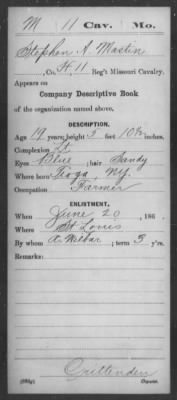 M 11 Cav. Mo.
Stephen A. Mastin
, Co. H. 11 Reg't Missouri Cavalry.
Appears on
Company Descriptive Book
of the organization named above.
DESCRIPTION.
Age 19 years; height 5 feet 10½ inches.
Complexion Lt
Eyes Blue ; hair Sandy
Where born Tioga, N.Y.
Occupation Farmer
ENLISTMENT.
When June 20 , 186 .
Where St Louis
By whom A. Wilbar ; term 3 y'rs.
Remarks:
Crittenden
Copyist.